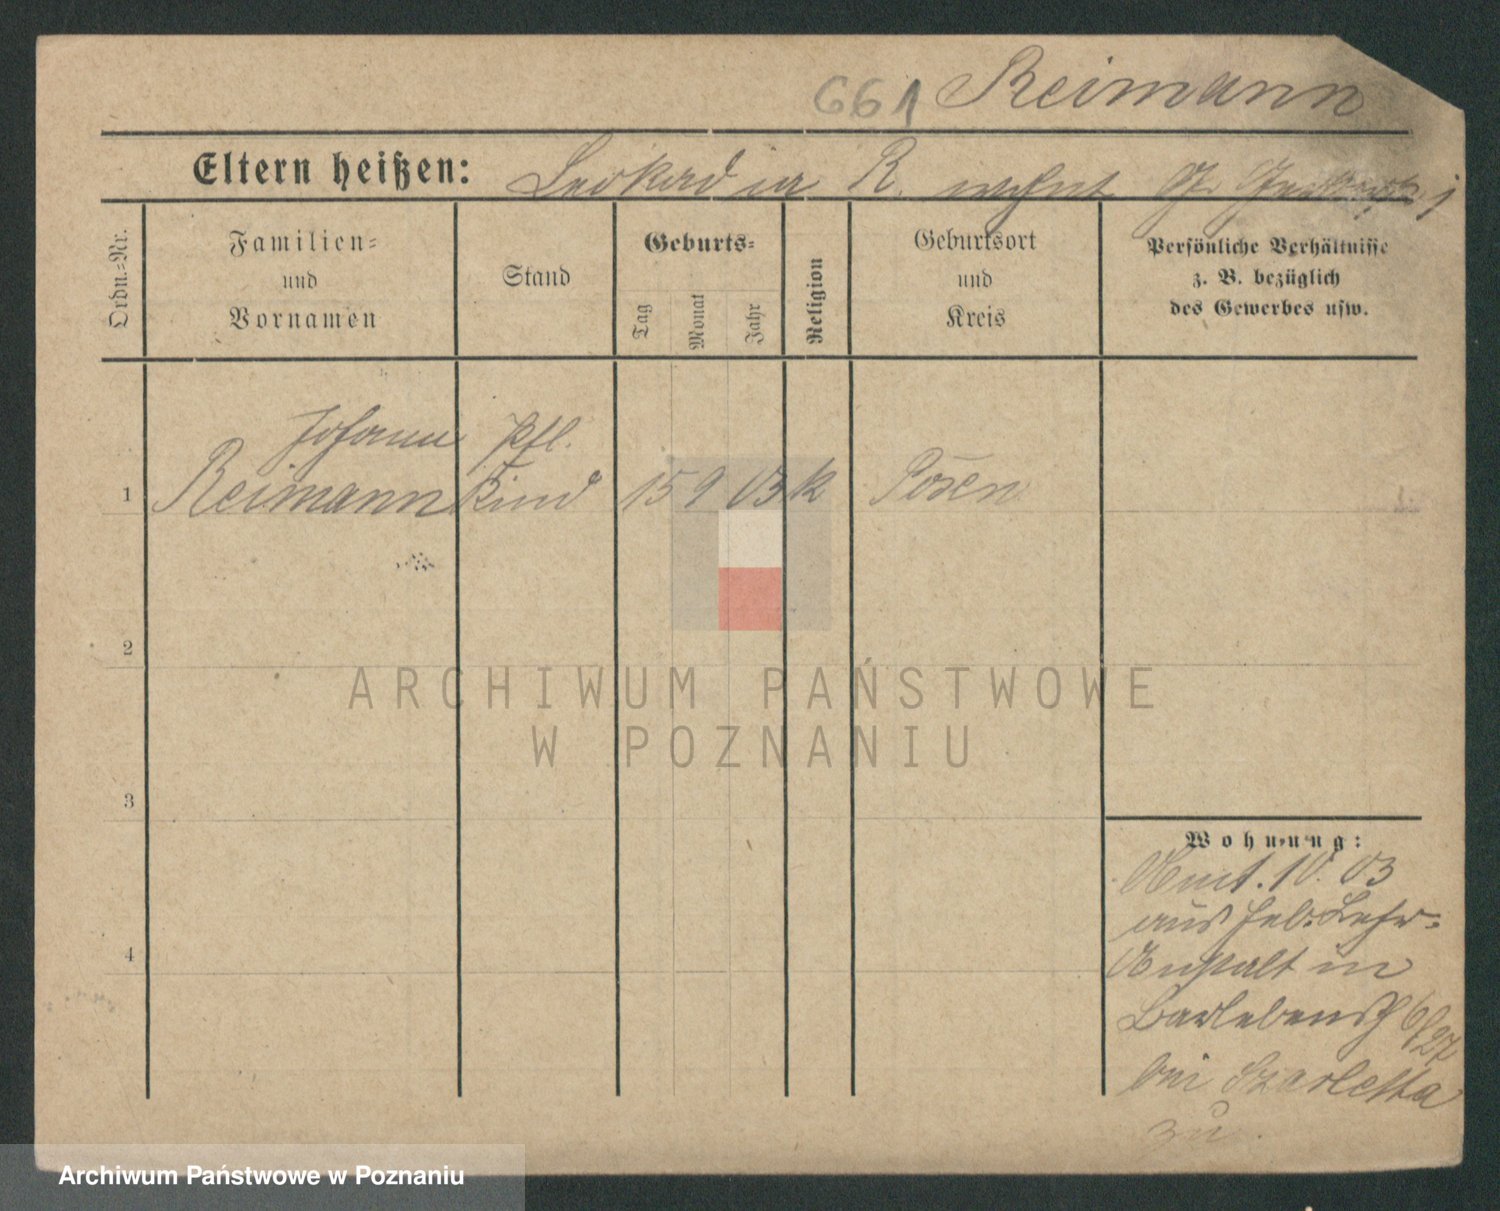 661 Reimann
Eltern heißen: Leokadia R. wohnt
Ordn.-Nr.
Familien-
und
Vornamen
Stand
Geburts-
Tag
Monat
Jahr
Religion
Geburtsort
und
Kreis
Persönliche Verhältnisse
z. B. bezüglich
des Gewerbes usw.
Johann Pfl.
1 Reimann Kind 15 9 03 k Posen
2
3
4
Wohnung:
Amt. 10. 03
aus Heb. Lehr-
Anstalt in
6/27
bei Skarletta
zu.
ARCHIWUM PAŃSTWOWE
W POZNANIU
Archiwum Państwowe w Poznaniu